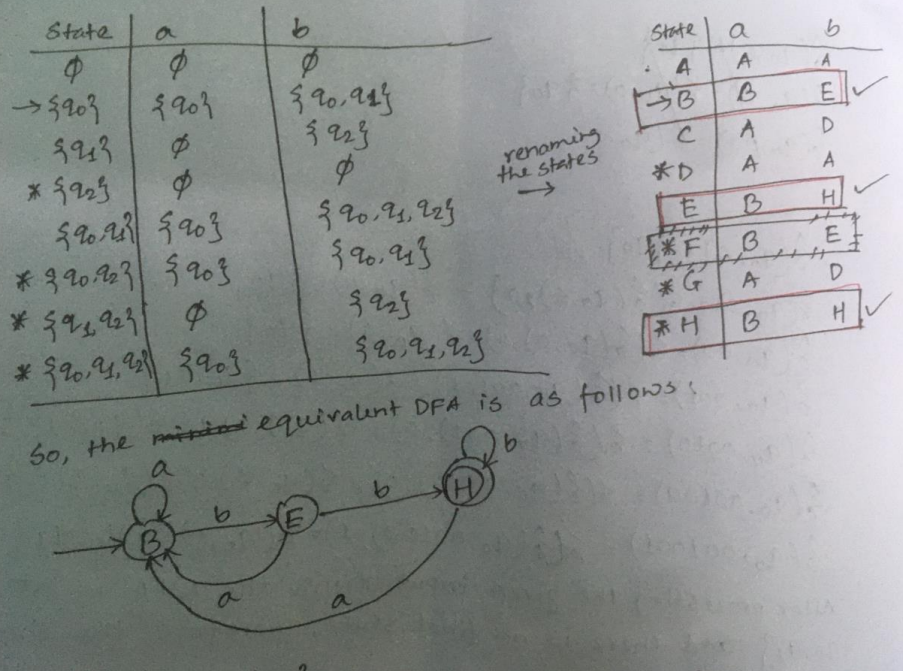 State a b
ϕ ϕ ϕ
→{q0} {q0} {q0,q1}
{q1} ϕ {q2}
* {q2} ϕ ϕ
{q0,q1} {q0} {q0,q1,q2}
* {q0,q2} {q0} {q0,q1}
* {q1,q2} ϕ {q2}
* {q0,q1,q2} {q0} {q0,q1,q2}
renaming
the states
→
State a b
A A A
→B B E ✓
C A D
*D A A
E B H ✓
*F B E
*G A D
*H B H ✓
So, the minimi equivalent DFA is as follows:
a
b
b
b
B
E
H
a
a